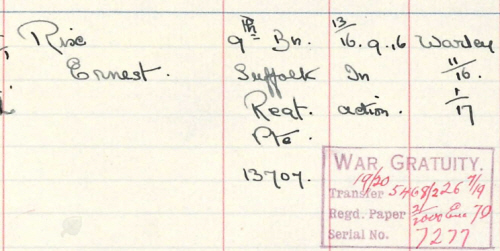 Rise 9th Bn. 13/16.9.16 Warley
Ernest. Suffolk In 11/16.
Regt. action. 1/17
Pte.
13707.
WAR GRATUITY.
19/20 7/19
Transfer 5468/226
Regd. Paper 2/2000 70
Serial No. 7277